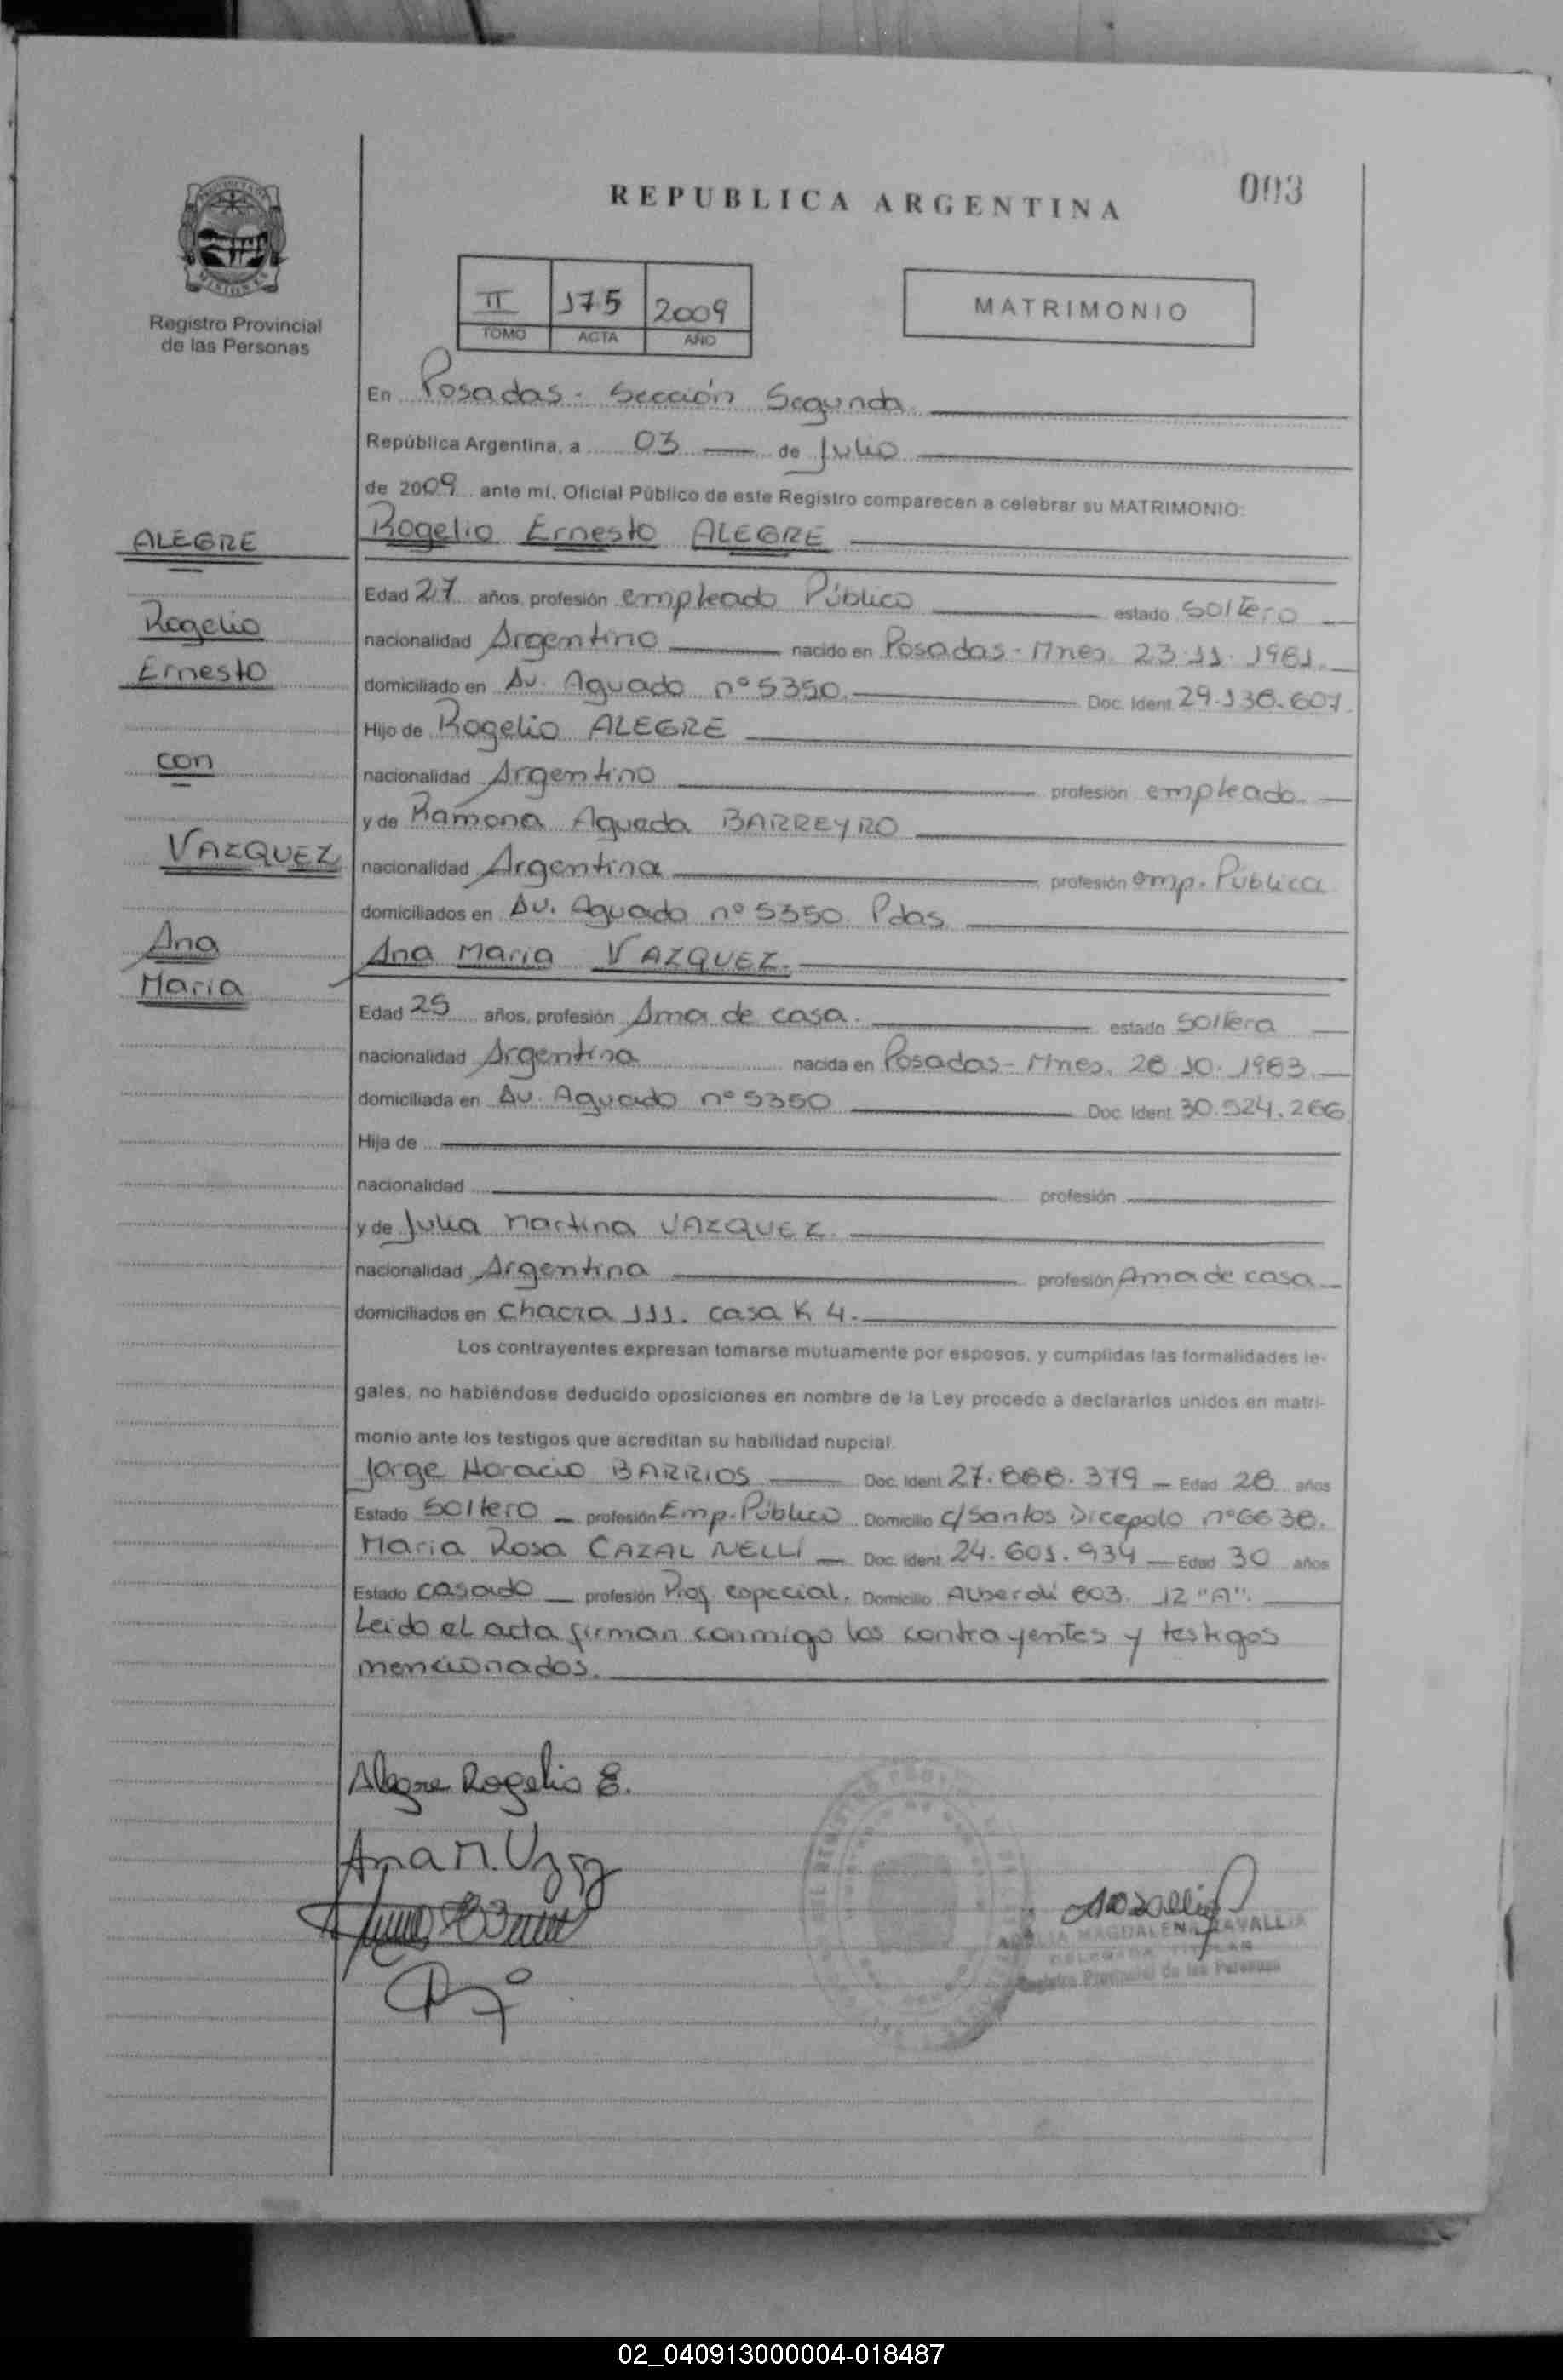 003
REPUBLICA ARGENTINA
Registro Provincial
de las Personas
II 175 2009
TOMO ACTA AÑO
MATRIMONIO
En Posadas - Sección Segunda
República Argentina, a 03 de Julio
de 2009 ante mí, Oficial Público de este Registro comparecen a celebrar su MATRIMONIO:
ALEGRE
Rogelio
Ernesto
con
VAZQUEZ
Ana
Maria
Rogelio Ernesto ALEGRE
Edad 27 años, profesión empleado Público estado soltero
nacionalidad Argentino nacido en Posadas - Mnes. 23.11.1981
domiciliado en Av. Aguado nº 5350. Doc. Ident 29.138.607
Hijo de Rogelio ALEGRE
nacionalidad Argentino profesión empleado
y de Ramona Agueda BARREYRO
nacionalidad Argentina profesión emp. Publica
domiciliados en Av. Aguado nº 5350. Pdas
Ana Maria VAZQUEZ.
Edad 25 años, profesión Ama de casa. estado soltera
nacionalidad Argentina nacida en Posadas - Mnes. 28.10.1983
domiciliada en Av. Aguado nº 5350 Doc. Ident 30.524.266
Hija de
nacionalidad profesión
y de Julia Martina VAZQUEZ.
nacionalidad Argentina profesión Ama de casa
domiciliados en Chacra 111. casa K 4.
Los contrayentes expresan tomarse mutuamente por esposos, y cumplidas las formalidades le-
gales, no habiéndose deducido oposiciones en nombre de la Ley procedo a declararlos unidos en matri-
monio ante los testigos que acreditan su habilidad nupcial.
Jorge Horacio BARRIOS Doc. Ident 27.888.379 - Edad 28 años
Estado Soltero profesión Emp. Público Domicilio c/ Santos Dicepolo nº 6638.
Maria Rosa CAZAL NELLI Doc. Ident 24.601.934 - Edad 30 años
Estado casado profesión Prof. especial. Domicilio Alberdi 803. 12 "A".
Leido el acta firman conmigo los contrayentes y testigos
mencionados.
Alegre Rogelio E.
Ana M.
MAGDALENA ZAVALLIA
DELEGADA TITULAR
Registro Provincial de las Personas
02_040913000004-018487